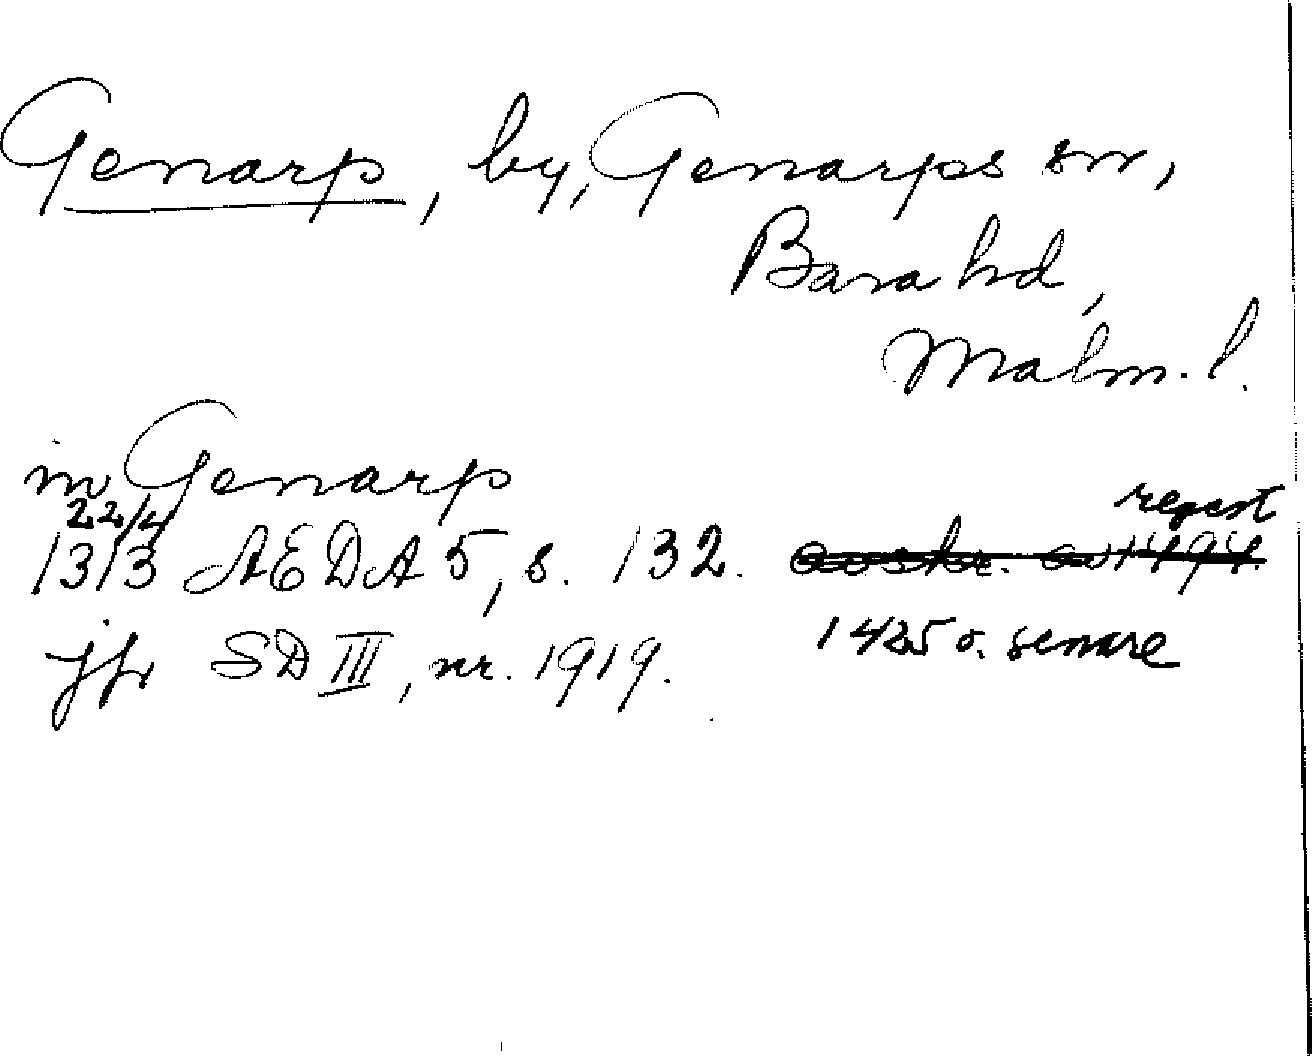 Genarp, by, Genarps sn,
Bara hd,
Malm. l.
in Genarp
22/4 regest
1313 AEDA 5, s. 132. avskr. av 1494.
jfr SD III, nr. 1919. 1425 o. senare